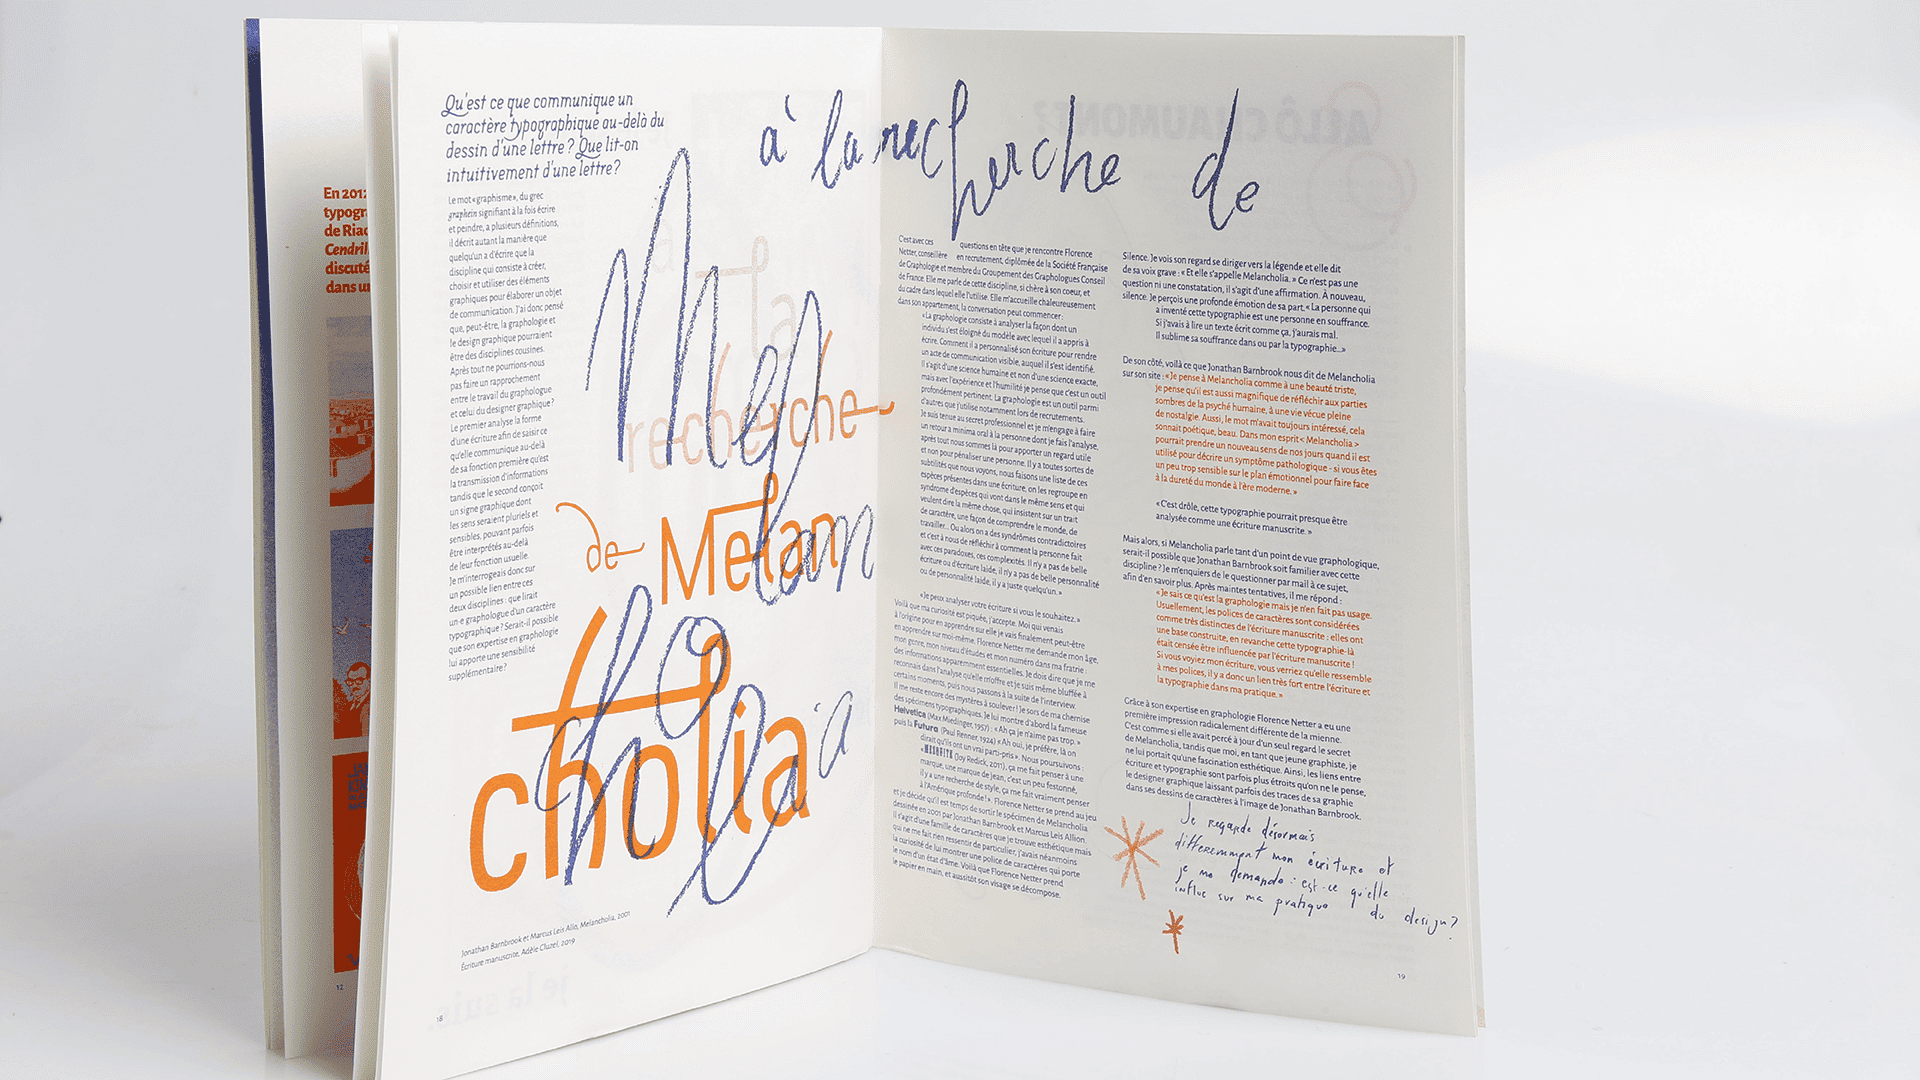 En 201
typogr
de Riad
Cendril
discuté
dans un
12
Qu'est ce que communique un
caractère typographique au-delà du
dessin d'une lettre ? Que lit-on
intuitivement d'une lettre ?
Le mot « graphisme », du grec
graphein signifiant à la fois écrire
et peindre, a plusieurs définitions,
il décrit autant la manière que
quelqu'un a d'écrire que la
discipline qui consiste à créer,
choisir et utiliser des éléments
graphiques pour élaborer un objet
de communication. J'ai donc pensé
que, peut-être, la graphologie et
le design graphique pourraient
être des disciplines cousines.
Après tout ne pourrions-nous
pas faire un rapprochement
entre le travail du graphologue
et celui du designer graphique ?
Le premier analyse la forme
d'une écriture afin de saisir ce
qu'elle communique au-delà
de sa fonction première qu'est
la transmission d'informations
tandis que le second conçoit
un signe graphique dont
les sens seraient pluriels et
sensibles, pouvant parfois
être interprétés au-delà
de leur fonction usuelle.
Je m'interrogeais donc sur
un possible lien entre ces
deux disciplines : que lirait
un·e graphologue d'un caractère
typographique ? Serait-il possible
que son expertise en graphologie
lui apporte une sensibilité
supplémentaire ?
à la recherche de
Mel
lan
cho
lia
à
la
recherche
de Melan
cholia
Jonathan Barnbrook et Marcus Leis Allo, Melancholia, 2001
Écriture manuscrite, Adèle Cluzel, 2019
18
C'est avec ces questions en tête que je rencontre Florence
Netter, conseillère en recrutement, diplômée de la Société Française
de Graphologie et membre du Groupement des Graphologues Conseil
de France. Elle me parle de cette discipline, si chère à son coeur, et
du cadre dans lequel elle l'utilise. Elle m'accueille chaleureusement
dans son appartement, la conversation peut commencer :
« La graphologie consiste à analyser la façon dont un
individu s'est éloigné du modèle avec lequel il a appris à
écrire. Comment il a personnalisé son écriture pour rendre
un acte de communication visible, auquel il s'est identifié.
Il s'agit d'une science humaine et non d'une science exacte,
mais avec l'expérience et l'humilité je pense que c'est un outil
profondément pertinent. La graphologie est un outil parmi
d'autres que j'utilise notamment lors de recrutements.
Je suis tenue au secret professionnel et je m'engage à faire
un retour a minima oral à la personne dont je fais l'analyse,
après tout nous sommes là pour apporter un regard utile
et non pour pénaliser une personne. Il y a toutes sortes de
subtilités que nous voyons, nous faisons une liste de ces
espèces présentes dans une écriture, on les regroupe en
syndrome d'espèces qui vont dans le même sens et qui
veulent dire la même chose, qui insistent sur un trait
de caractère, une façon de comprendre le monde, de
travailler... Ou alors on a des syndromes contradictoires
et c'est à nous de réfléchir à comment la personne fait
avec ces paradoxes, ces complexités. Il n'y a pas de belle
écriture ou d'écriture laide, il n'y a pas de belle personnalité
ou de personnalité laide, il y a juste quelqu'un. »
« Je peux analyser votre écriture si vous le souhaitez. »
Voilà que ma curiosité est piquée, j'accepte. Moi qui venais
à l'origine pour en apprendre sur elle je vais finalement peut-être
en apprendre sur moi-même. Florence Netter me demande mon âge,
mon genre, mon niveau d'études et mon numéro dans ma fratrie :
des informations apparemment essentielles. Je dois dire que je me
reconnais dans l'analyse qu'elle m'offre et je suis même bluffée à
certains moments, puis nous passons à la suite de l'interview.
Il me reste encore des mystères à soulever ! Je sors de ma chemise
des spécimens typographiques. Je lui montre d'abord la fameuse
Helvetica (Max Miedinger, 1957) : « Ah ça je n'aime pas trop. »
puis la Futura (Paul Renner, 1924) « Ah oui, je préfère, là on
dirait qu'ils ont un vrai parti-pris ». Nous poursuivons :
« MESQUITE (Joy Redick, 2011), ça me fait penser à une
marque, une marque de jean, c'est un peu festonné,
il y a une recherche de style, ça me fait vraiment penser
à l'Amérique profonde ! ». Florence Netter se prend au jeu
et je décide qu'il est temps de sortir le spécimen de Melancholia
dessinée en 2001 par Jonathan Barnbrook et Marcus Leis Allion.
Il s'agit d'une famille de caractères que je trouve esthétique mais
qui ne me fait rien ressentir de particulier, j'avais néanmoins
la curiosité de lui montrer une police de caractères qui porte
le nom d'un état d'âme. Voilà que Florence Netter prend
le papier en main, et aussitôt son visage se décompose.
Silence. Je vois son regard se diriger vers la légende et elle dit
de sa voix grave : « Et elle s'appelle Melancholia. » Ce n'est pas une
question ni une constatation, il s'agit d'une affirmation. À nouveau,
silence. Je perçois une profonde émotion de sa part. « La personne qui
a inventé cette typographie est une personne en souffrance.
Si j'avais à lire un texte écrit comme ça, j'aurais mal.
Il sublime sa souffrance dans ou par la typographie...»
De son côté, voilà ce que Jonathan Barnbrook nous dit de Melancholia
sur son site : « Je pense à Melancholia comme à une beauté triste,
je pense qu'il est aussi magnifique de réfléchir aux parties
sombres de la psyché humaine, à une vie vécue pleine
de nostalgie. Aussi, le mot m'avait toujours intéressé, cela
sonnait poétique, beau. Dans mon esprit « Melancholia »
pourrait prendre un nouveau sens de nos jours quand il est
utilisé pour décrire un symptôme pathologique - si vous êtes
un peu trop sensible sur le plan émotionnel pour faire face
à la dureté du monde à l'ère moderne. »
« C'est drôle, cette typographie pourrait presque être
analysée comme une écriture manuscrite. »
Mais alors, si Melancholia parle tant d'un point de vue graphologique,
serait-il possible que Jonathan Barnbrook soit familier avec cette
discipline ? Je m'enquiers de le questionner par mail à ce sujet,
afin d'en savoir plus. Après maintes tentatives, il me répond :
« Je sais ce qu'est la graphologie mais je n'en fait pas usage.
Usuellement, les polices de caractères sont considérées
comme très distinctes de l'écriture manuscrite ; elles ont
une base construite, en revanche cette typographie-là
était censée être influencée par l'écriture manuscrite !
Si vous voyiez mon écriture, vous verriez qu'elle ressemble
à mes polices, il y a donc un lien très fort entre l'écriture et
la typographie dans ma pratique. »
Grâce à son expertise en graphologie Florence Netter a eu une
première impression radicalement différente de la mienne.
C'est comme si elle avait percé à jour d'un seul regard le secret
de Melancholia, tandis que moi, en tant que jeune graphiste, je
ne lui portait qu'une fascination esthétique. Ainsi, les liens entre
écriture et typographie sont parfois plus étroits qu'on ne le pense,
le designer graphique laissant parfois des traces de sa graphie
dans ses dessins de caractères à l'image de Jonathan Barnbrook.
Je regarde désormais
différemment mon écriture et
je me demande : est-ce qu'elle
influe sur ma pratique du design ?
19